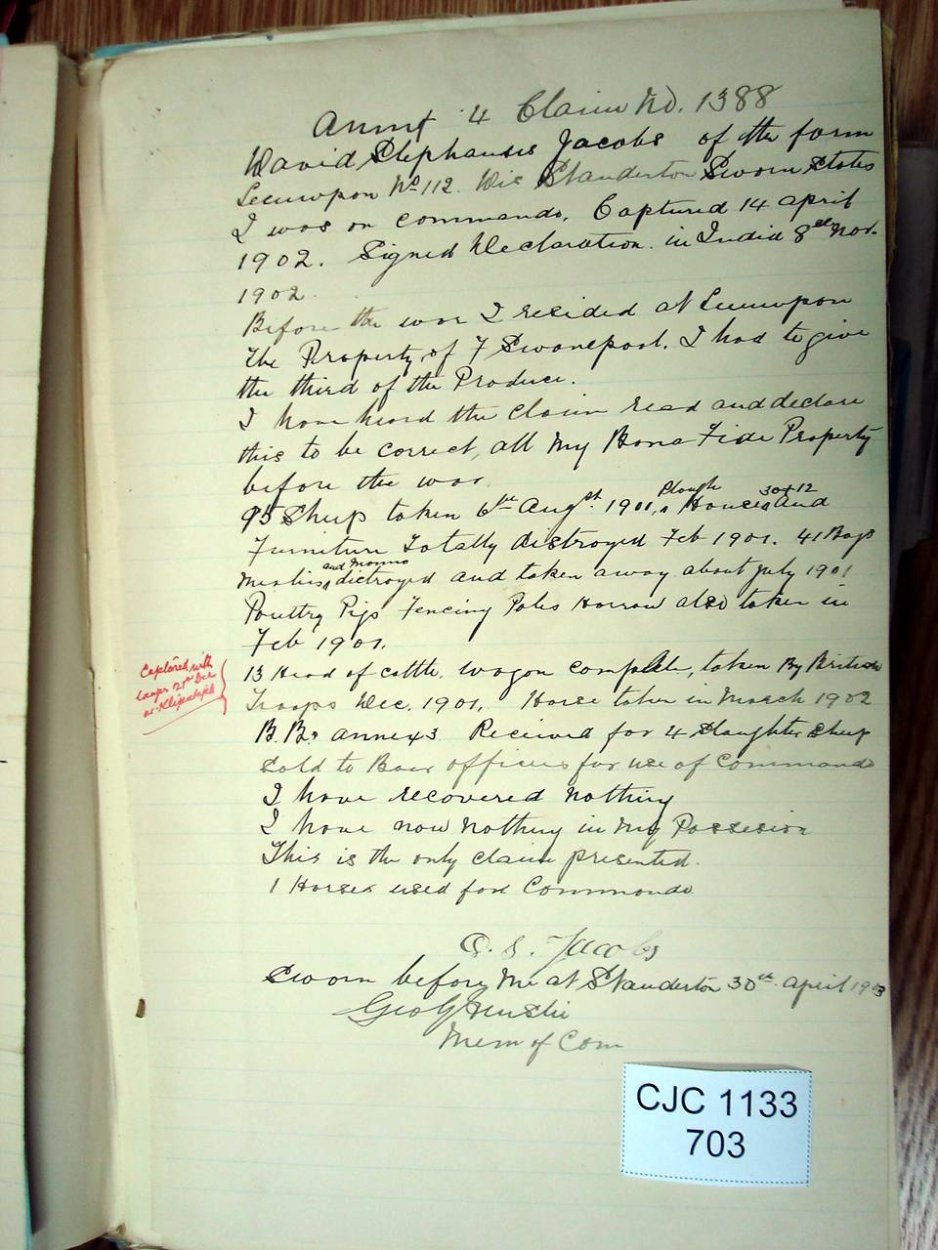 Annex 4 Claim No. 1388
David Stephanus Jacobs of the farm
Leeuwpon No 112. Dis Standerton Sworn States
I was on commando. Captured 14 april
1902. Signed Declaration in India 8th Nov.
1902.
Before the war I resided at Leeuwpon
the Property of F Swanepoel. I had to give
the third of the Produce.
I have heard the claim read and declare
this to be correct, all my Bona Fide Property
before the war
95 Sheep taken 6th Augst 1901, Plough, Houses 30x12 and
Furniture Totally distroyed Feb 1901. 41 Bags
Mealies and Manna distroyed and taken away about July 1901
Poultry Pigs Fencing Poles Harrow also taken in
Feb 1901.
13 Head of cattle. wagon complete, taken By British
Troops Dec. 1901. Horse taken in March 1902
Captured with
Laager 21st Dec
at
B.B. annex 3 Received for 4 Slaughter Sheep
Sold to Boer officers for use of Commando
I have recovered nothing
I have now nothing in my Possesion
This is the only claim presented.
1 Horses used for Commando
D. S. Jacobs
Sworn before me at Standerton 30th april 1903
Geo G
Mem of Com
CJC 1133
703